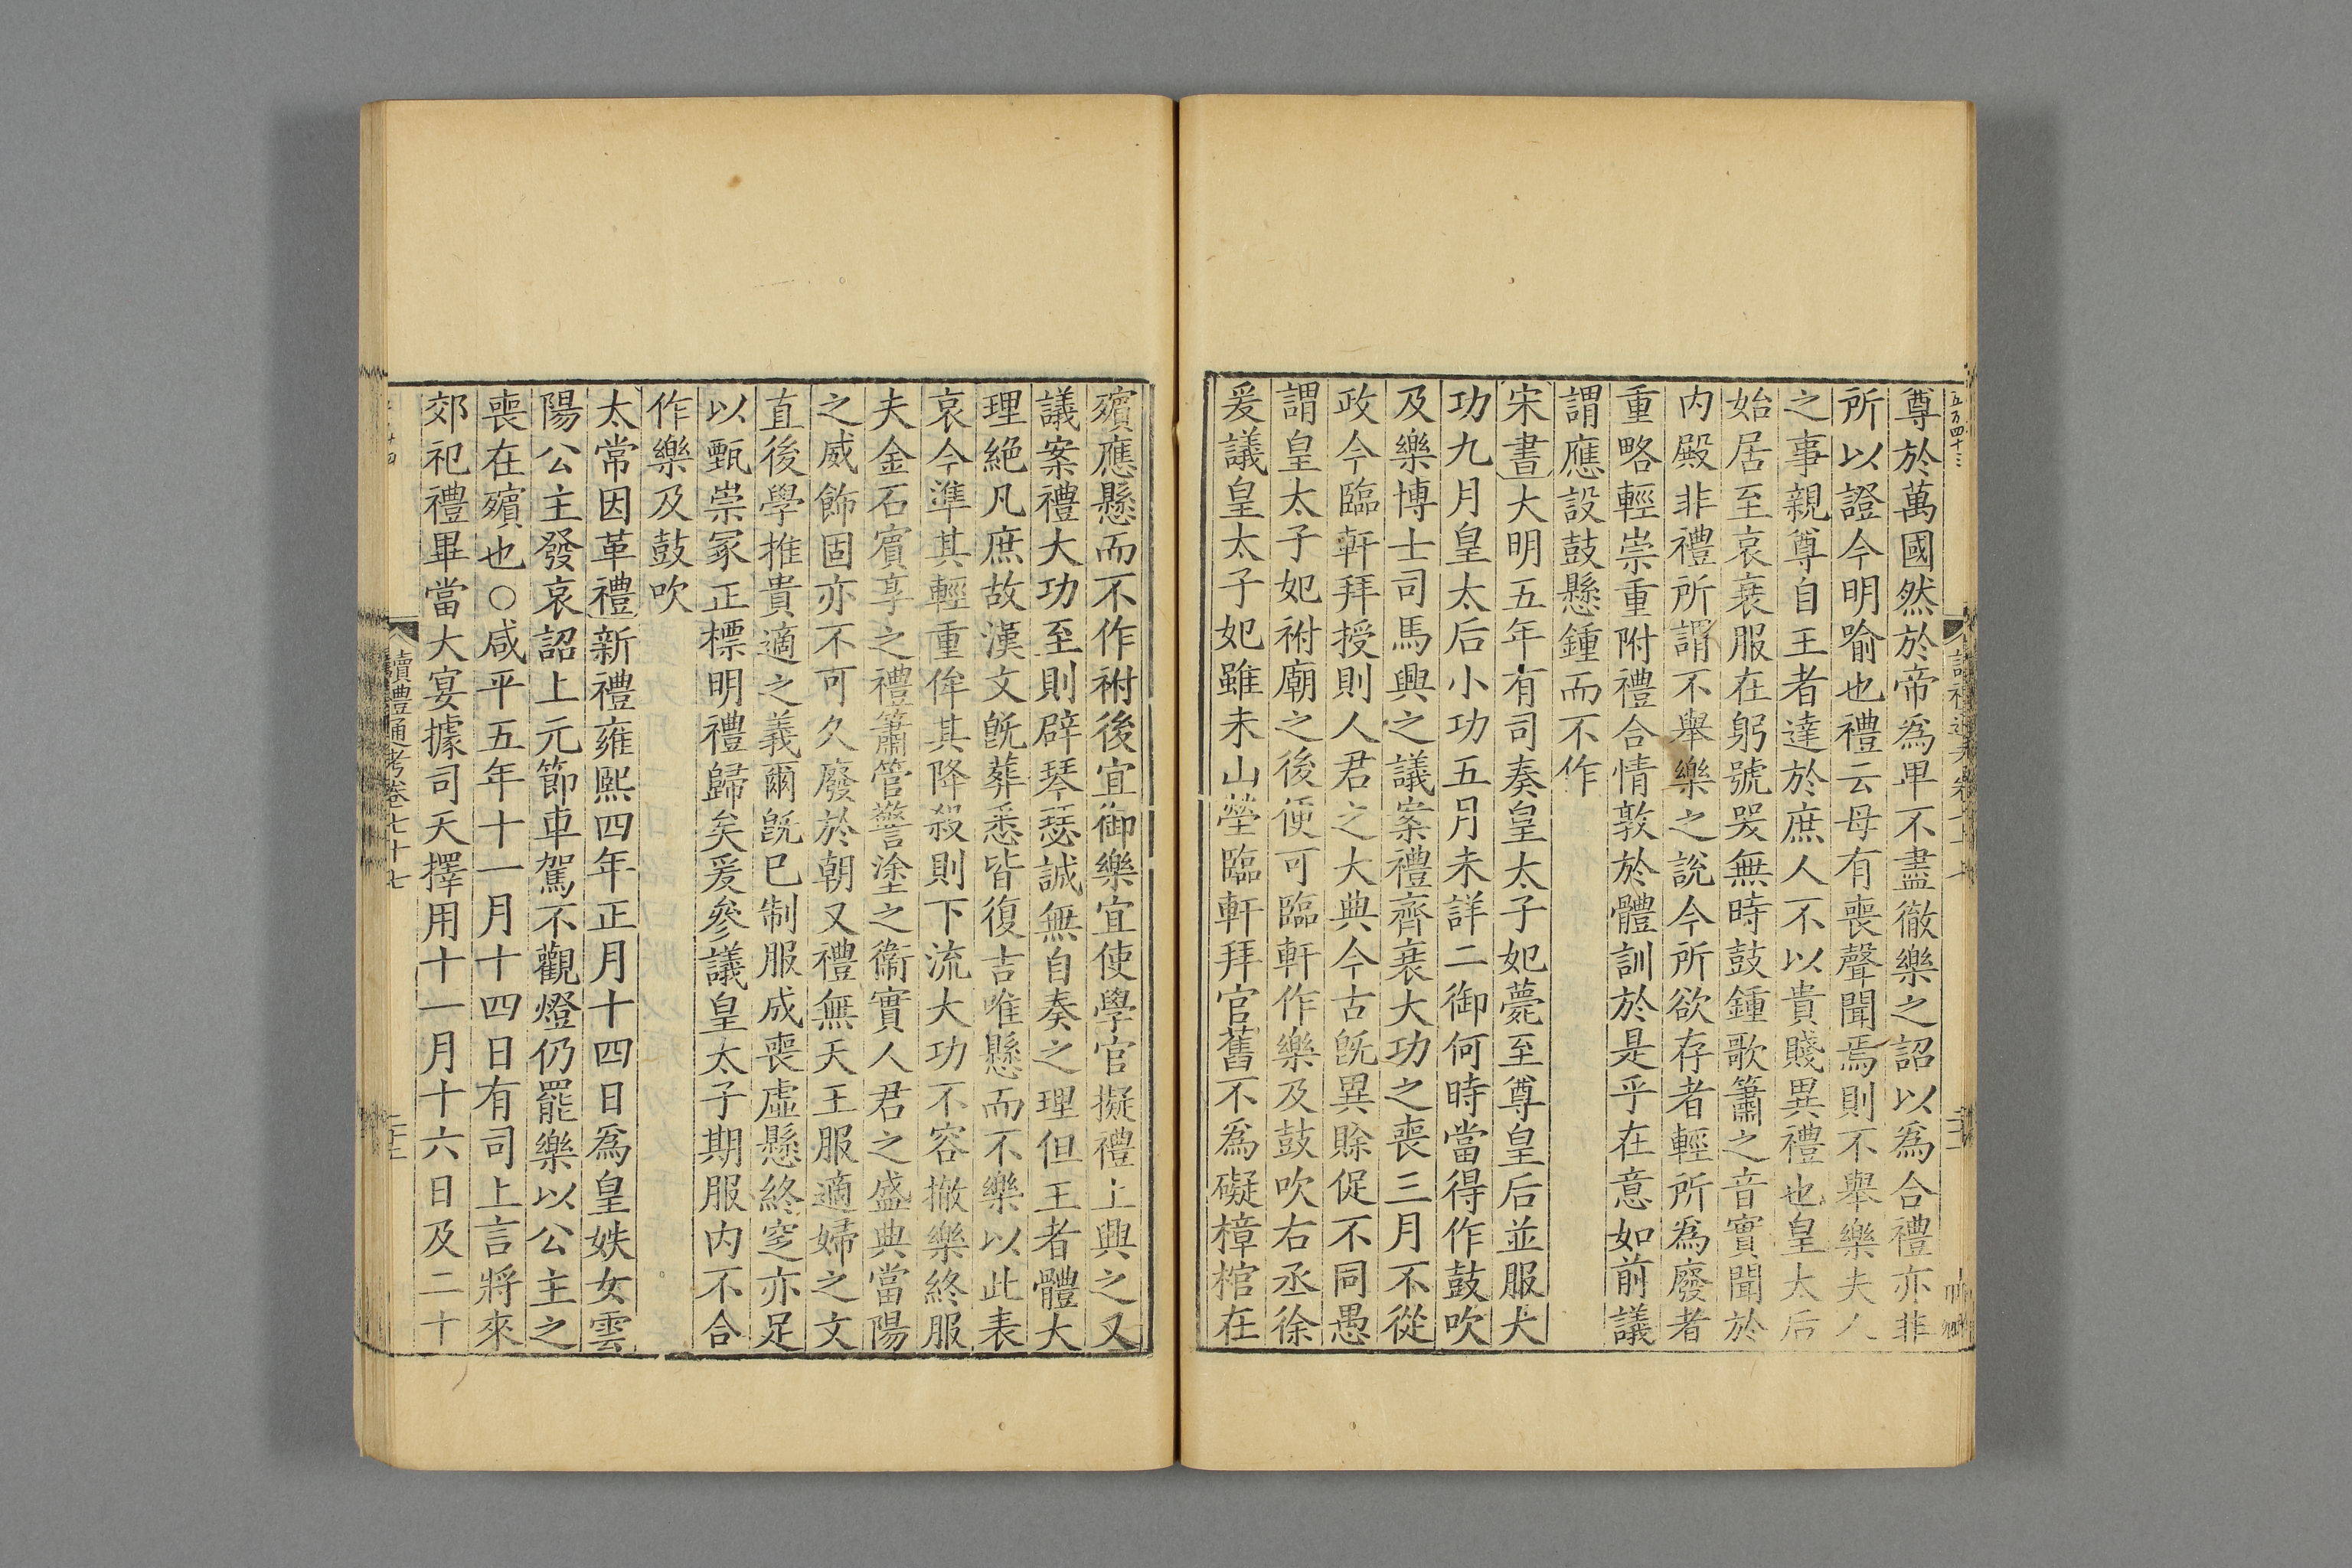 五百四十三
讀禮通考卷七十七
尊於萬國然於帝爲卑不盡徹樂之詔以爲合禮亦非
所以證今明喻也禮云母有喪聲聞焉則不舉樂夫人
之事親尊自王者達於庶人不以貴賤異禮也皇太后
始居至哀衰服在躬號哭無時鼓鍾歌簫之音實聞於
内殿非禮所謂不舉樂之說今所欲存者輕所爲廢者
重略輕崇重附禮合情敦於體訓於是乎在意如前議
謂應設鼓懸鍾而不作
宋書大明五年有司奏皇太子妃薨至尊皇后並服大
功九月皇太后小功五月未詳二御何時當得作鼓吹
及樂博士司馬興之議案禮齊衰大功之喪三月不從
政今臨軒拜授則人君之大典今古旣異賒促不同愚
謂皇太子妃祔廟之後便可臨軒作樂及鼓吹右丞徐
爰議皇太子妃雖未山塋臨軒拜官舊不爲礙樟棺在
殯應懸而不作祔後宜御樂宜使學官擬禮上興之又
議案禮大功至則辟琴瑟誠無自奏之理但王者體大
理絶凡庶故漢文旣葬悉皆復吉唯懸而不樂以此表
哀今準其輕重侔其降殺則下流大功不容撤樂終服
夫金石賓享之禮簫管警塗之衞實人君之盛典當陽
之威飾固亦不可久廢於朝又禮無天王服適婦之文
直後學推貴適之義爾旣已制服成喪虛懸終窆亦足
以甄崇冢正標明禮歸矣爰參議皇太子期服内不合
作樂及鼓吹
太常因革禮新禮雍熙四年正月十四日爲皇姝女雲
陽公主發哀詔上元節車駕不觀燈仍罷樂以公主之
喪在殯也○咸平五年十一月十四日有司上言將來
郊祀禮畢當大宴據司天擇用十一月十六日及二十
讀禮通考卷七十七